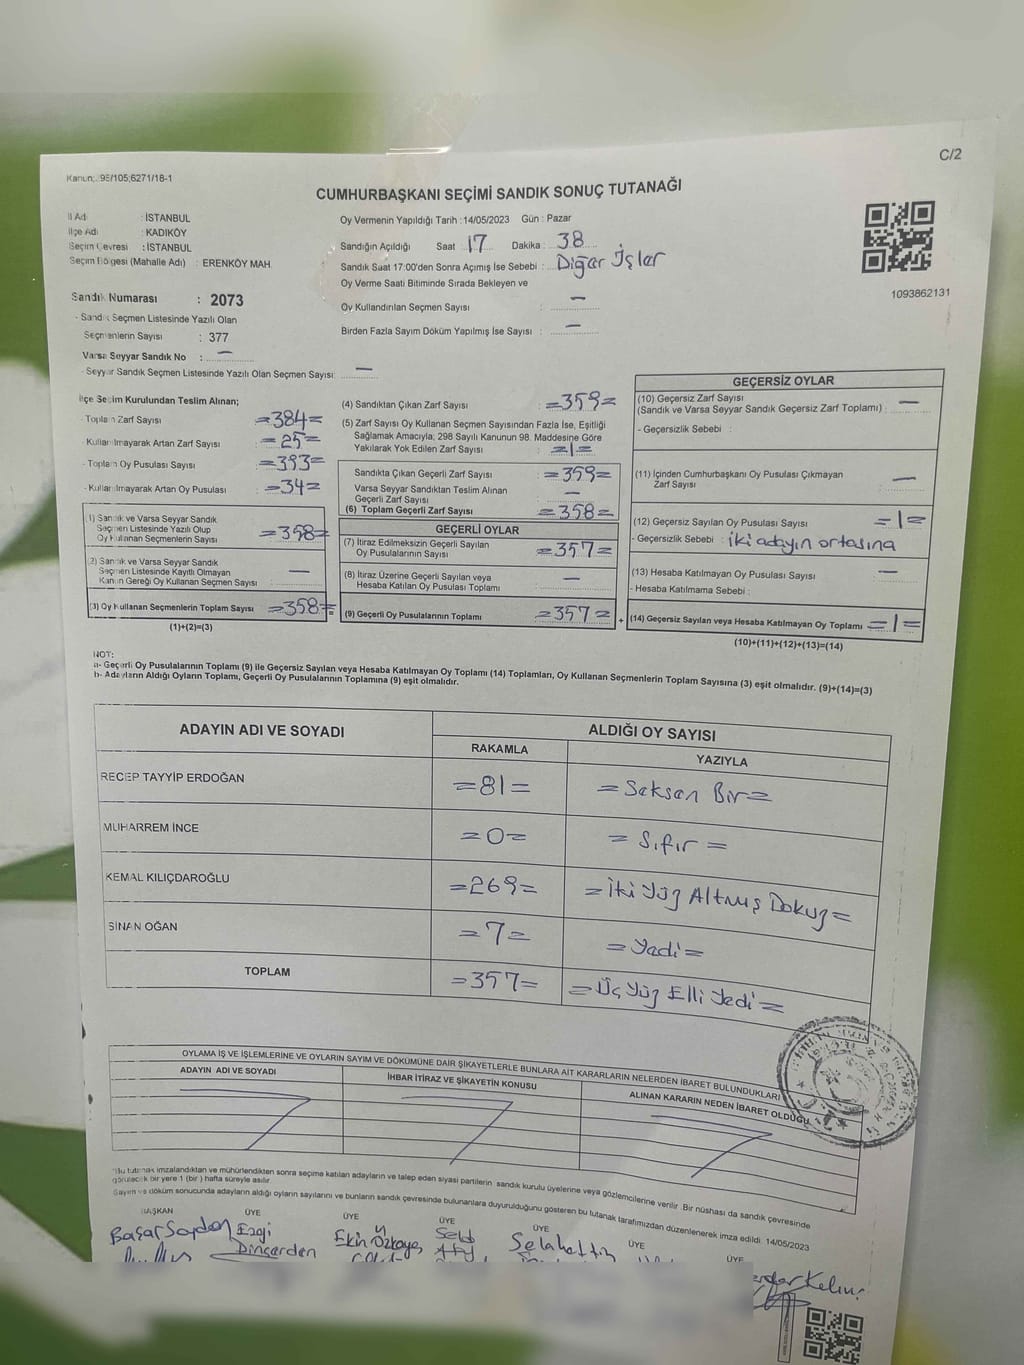 C/2
Kanun: 98/105;6271/18-1
CUMHURBAŞKANI SEÇİMİ SANDIK SONUÇ TUTANAĞI
İl Adı : İSTANBUL
İlçe Adı : KADIKÖY
Seçim Çevresi : İSTANBUL
Seçim Bölgesi (Mahalle Adı) : ERENKÖY MAH.
Oy Vermenin Yapıldığı Tarih : 14/05/2023 Gün : Pazar
Sandığın Açıldığı Saat 17 Dakika : 38
Sandık Saat 17:00'den Sonra Açımış İse Sebebi : Diğer İşler
Oy Verme Saati Bitiminde Sırada Bekleyen ve
Oy Kullandırılan Seçmen Sayısı : —
Birden Fazla Sayım Döküm Yapılmış İse Sayısı : —
1093862131
Sandık Numarası : 2073
- Sandık Seçmen Listesinde Yazılı Olan
Seçmenlerin Sayısı : 377
Varsa Seyyar Sandık No : —
- Seyyar Sandık Seçmen Listesinde Yazılı Olan Seçmen Sayısı: —
İlçe Seçim Kurulundan Teslim Alınan;
- Toplam Zarf Sayısı =384=
- Kullanılmayarak Artan Zarf Sayısı =25=
- Toplam Oy Pusulası Sayısı =393=
- Kullanılmayarak Artan Oy Pusulası =34=
(1) Sandık ve Varsa Seyyar Sandık
Seçmen Listesinde Yazılı Olup
Oy Kullanan Seçmenlerin Sayısı =358=
(2) Sandık ve Varsa Seyyar Sandık
Seçmen Listesinde Kayıtlı Olmayan
Kanun Gereği Oy Kullanan Seçmen Sayısı : —
(3) Oy Kullanan Seçmenlerin Toplam Sayısı =358=
(1)+(2)=(3)
(4) Sandıktan Çıkan Zarf Sayısı =359=
(5) Zarf Sayısı Oy Kullanan Seçmen Sayısından Fazla İse, Eşitliği
Sağlamak Amacıyla, 298 Sayılı Kanunun 98. Maddesine Göre
Yakılarak Yok Edilen Zarf Sayısı =1=
Sandıkta Çıkan Geçerli Zarf Sayısı =359=
Varsa Seyyar Sandıktan Teslim Alınan
Geçerli Zarf Sayısı —
(6) Toplam Geçerli Zarf Sayısı =358=
GEÇERLİ OYLAR
(7) İtiraz Edilmeksizin Geçerli Sayılan
Oy Pusulalarının Sayısı =357=
(8) İtiraz Üzerine Geçerli Sayılan veya
Hesaba Katılan Oy Pusulası Toplamı —
(9) Geçerli Oy Pusulalarının Toplamı =357=
GEÇERSİZ OYLAR
(10) Geçersiz Zarf Sayısı
(Sandık ve Varsa Seyyar Sandık Geçersiz Zarf Toplamı) : —
- Geçersizlik Sebebi :
(11) İçinden Cumhurbaşkanı Oy Pusulası Çıkmayan
Zarf Sayısı —
(12) Geçersiz Sayılan Oy Pusulası Sayısı =1=
- Geçersizlik Sebebi : iki adayın ortasına
(13) Hesaba Katılmayan Oy Pusulası Sayısı : —
- Hesaba Katılmama Sebebi :
+ (14) Geçersiz Sayılan veya Hesaba Katılmayan Oy Toplamı =1=
(10)+(11)+(12)+(13)=(14)
NOT:
a- Geçerli Oy Pusulalarının Toplamı (9) ile Geçersiz Sayılan veya Hesaba Katılmayan Oy Toplamı (14) Toplamları, Oy Kullanan Seçmenlerin Toplam Sayısına (3) eşit olmalıdır. (9)+(14)=(3)
b- Adayların Aldığı Oyların Toplamı, Geçerli Oy Pusulalarının Toplamına (9) eşit olmalıdır.
ADAYIN ADI VE SOYADI
ALDIĞI OY SAYISI
RAKAMLA YAZIYLA
RECEP TAYYİP ERDOĞAN =81= =Seksen Bir=
MUHARREM İNCE =0= =Sıfır=
KEMAL KILIÇDAROĞLU =269= =İki Yüz Altmış Dokuz=
SİNAN OĞAN =7= =Yedi=
TOPLAM =357= =Üç Yüz Elli Yedi=
OYLAMA İŞ VE İŞLEMLERİNE VE OYLARIN SAYIM VE DÖKÜMÜNE DAİR ŞİKAYETLERLE BUNLARA AİT KARARLARIN NELERDEN İBARET BULUNDUKLARI
ADAYIN ADI VE SOYADI
İHBAR İTİRAZ VE ŞİKAYETİN KONUSU
ALINAN KARARIN NEDEN İBARET OLDUĞU
*Bu tutanak imzalandıktan ve mühürlendikten sonra seçime katılan adayların ve talep eden siyasi partilerin sandık kurulu üyelerine veya gözlemcilerine verilir. Bir nüshası da sandık çevresinde
görülecek bir yere 1 (bir) hafta süreyle asılır.
Sayım ve döküm sonucunda adayların aldığı oyların sayılarını ve bunların sandık çevresinde bulunanlara duyurulduğunu gösteren bu tutanak tarafımızdan düzenlenerek imza edildi. 14/05/2023
BAŞKAN ÜYE ÜYE ÜYE ÜYE ÜYE ÜYE
Ezgi Ekin Selahattin